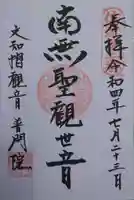 奉拝 令和四年七月二十三日
南無聖觀世音
大知惜觀音 普門院